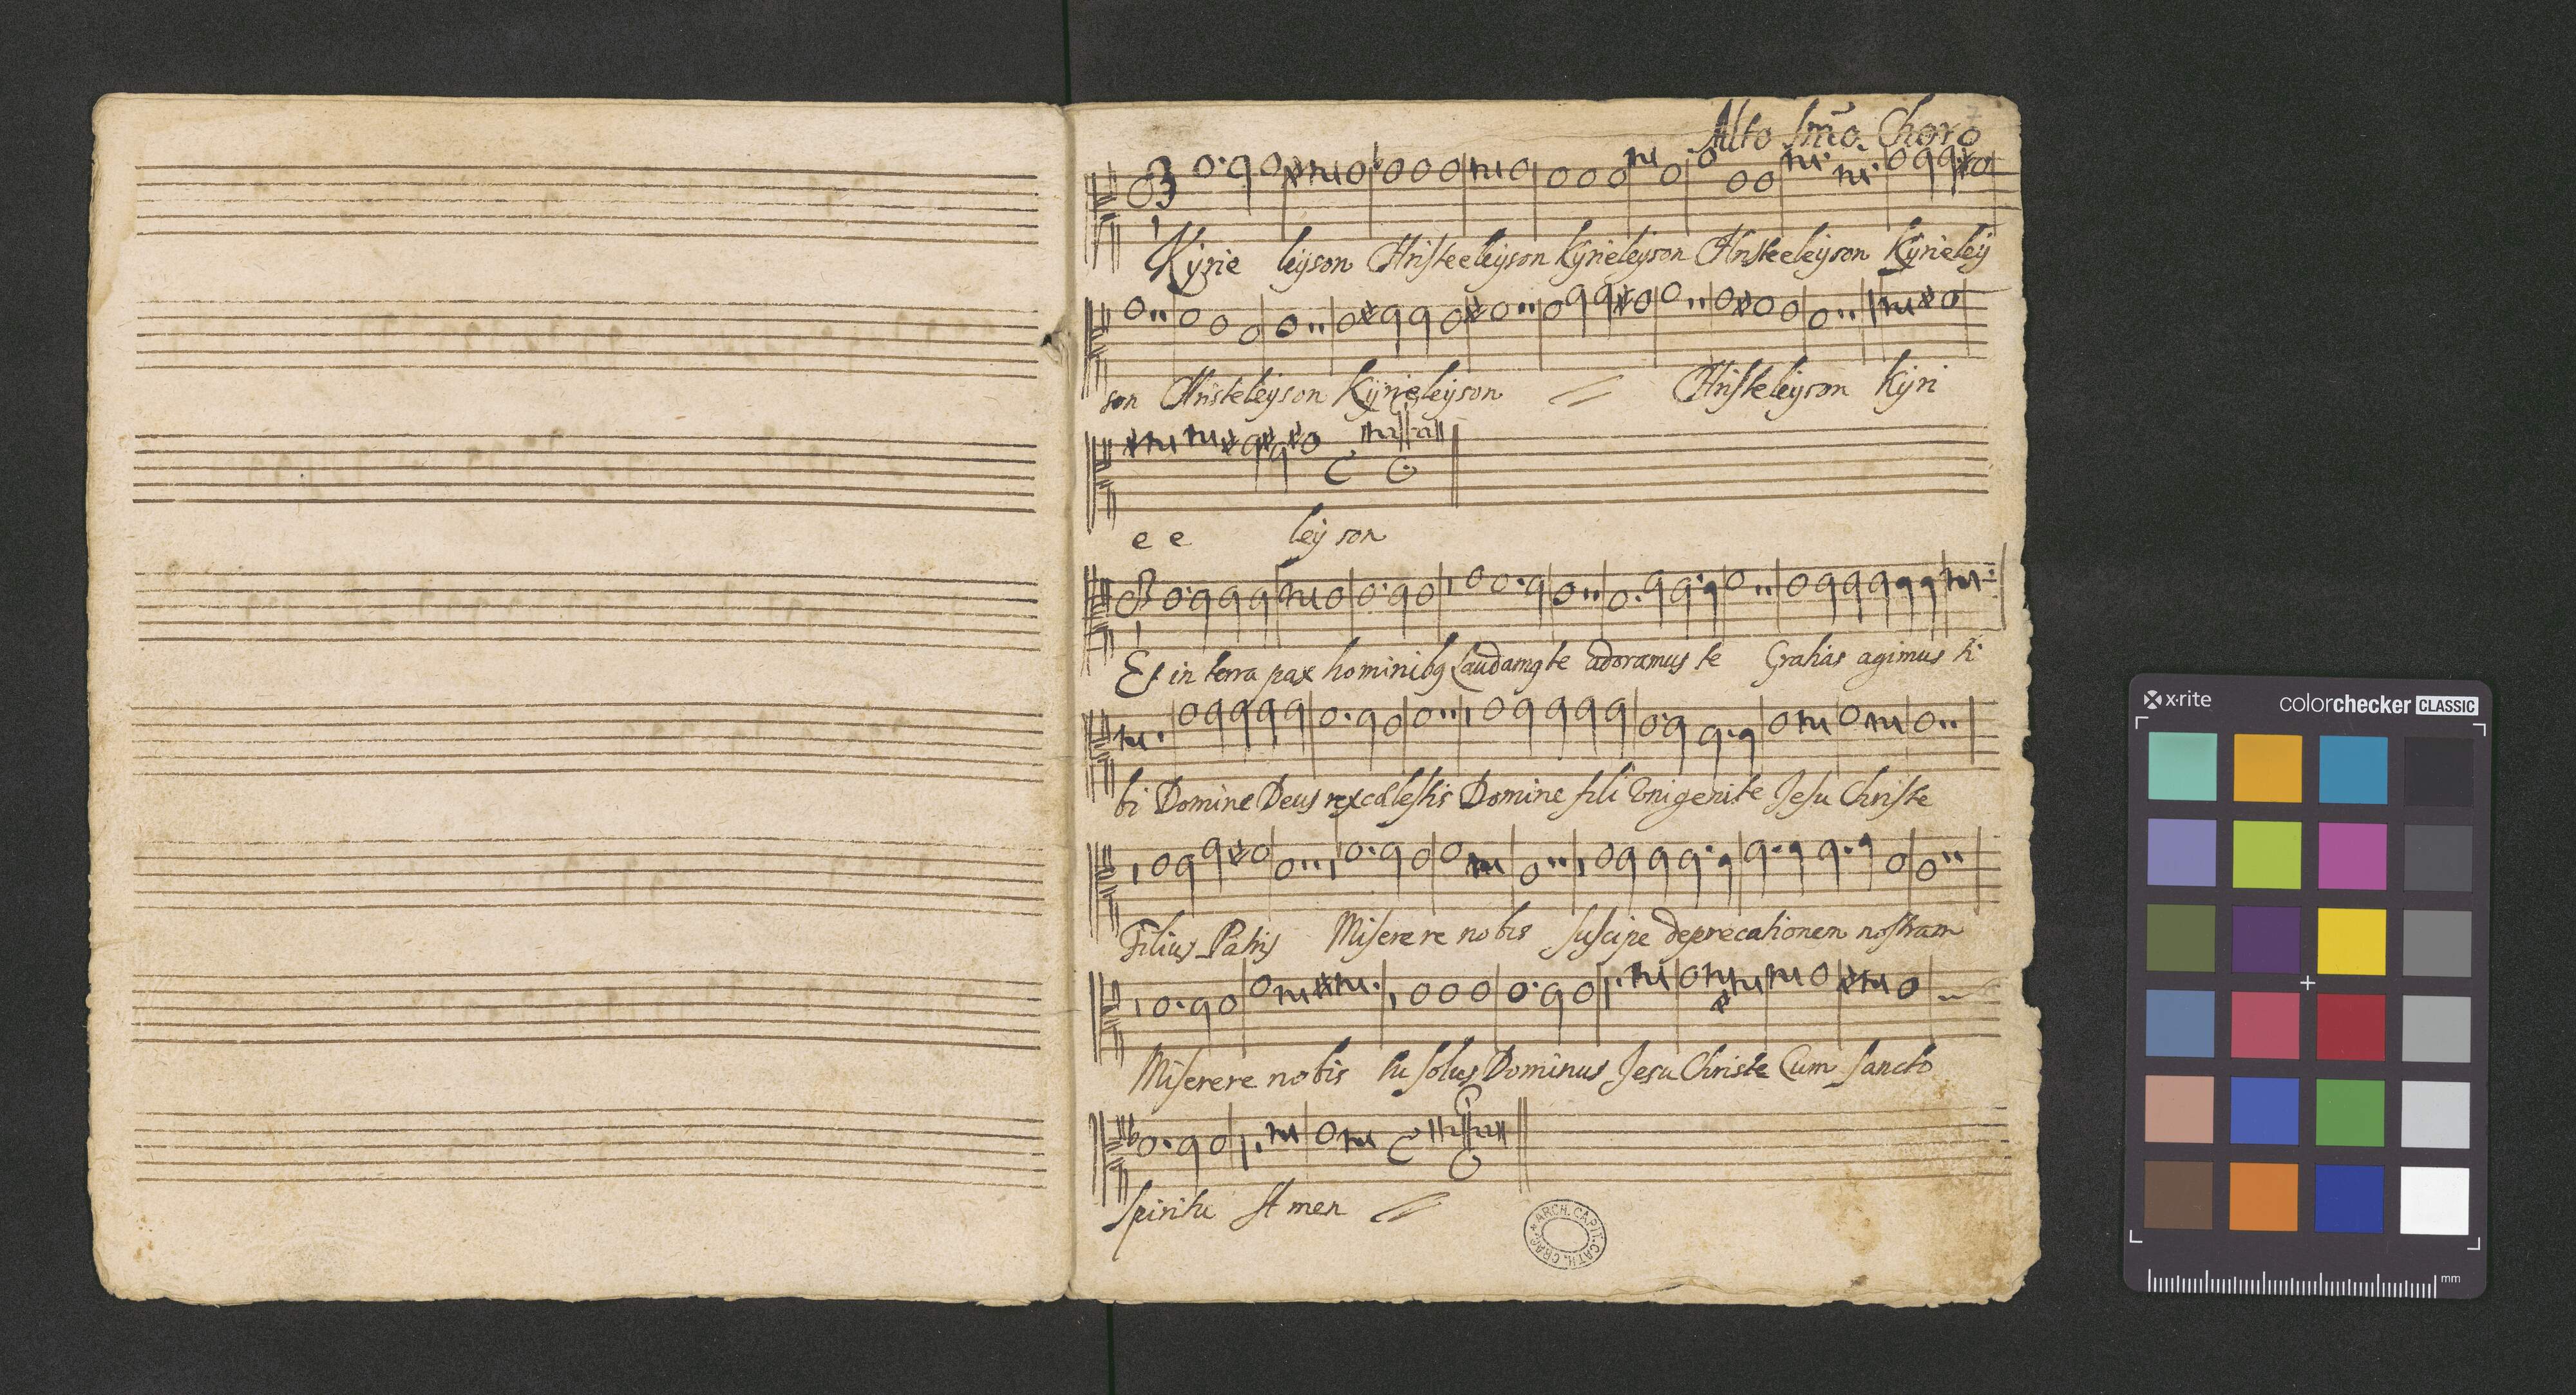 Alto Imo. Choro
Kyrie leyson Christeeleyson Kyrieleyson Christeeleyson Kyrieley
son Christeleyson Kyrieleyson Christeleyson Kyri
e e ley son
Et in terra pax hominibq Laudamq te adoramus te Gratias agimus ti
bi Domine Deus rex cælestis Domine fili Unigenite Jesu Christe
Filius Patris Miserere nobis suscipe deprecationem nostram
Miserere nobis tu solus Dominus Jesu Christe Cum sancto
spiritu Amen
ARCH. CAPIT. CATH. CRAC.
x·rite colorchecker CLASSIC
mm